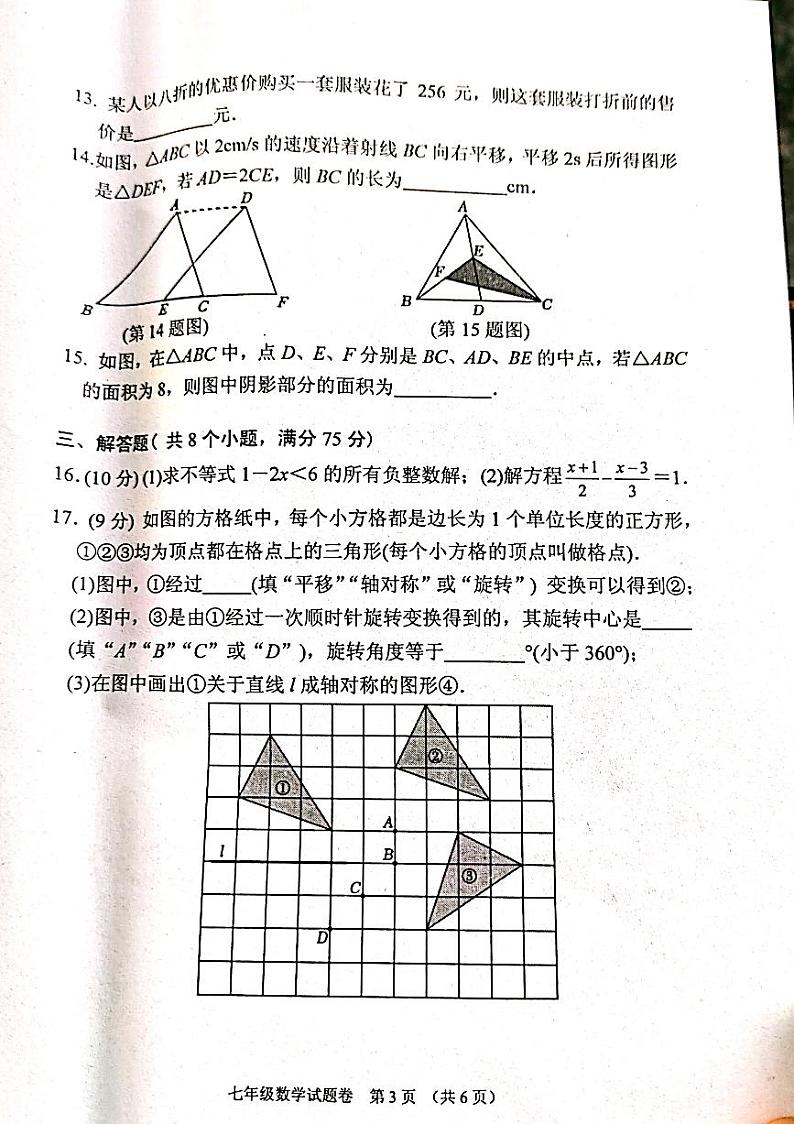 13. 某人以八折的优惠价购买一套服装花了 256 元，则这套服装打折前的售
价是________元.
14.如图，△ABC 以 2cm/s 的速度沿着射线 BC 向右平移，平移 2s 后所得图形
是△DEF，若 AD=2CE，则 BC 的长为__________cm.
A D
B E C F
(第 14 题图)
A
E
F
B D C
(第 15 题图)
15. 如图，在△ABC 中，点 D、E、F 分别是 BC、AD、BE 的中点，若△ABC
的面积为 8，则图中阴影部分的面积为__________.
三、解答题( 共 8 个小题，满分 75 分)
16. (10 分) (1)求不等式 1－2x＜6 的所有负整数解；(2)解方程 (x+1)/2 − (x−3)/3 =1.
17. (9 分) 如图的方格纸中，每个小方格都是边长为 1 个单位长度的正方形，
①②③均为顶点都在格点上的三角形(每个小方格的顶点叫做格点).
(1)图中，①经过_____(填“平移”“轴对称”或“旋转”) 变换可以得到②；
(2)图中，③是由①经过一次顺时针旋转变换得到的，其旋转中心是_____
(填“A”“B”“C”或“D”)，旋转角度等于________°(小于 360°)；
(3)在图中画出①关于直线 l 成轴对称的图形④.
②
①
A
l
B
③
C
D
七年级数学试题卷 第 3 页 （共 6 页）